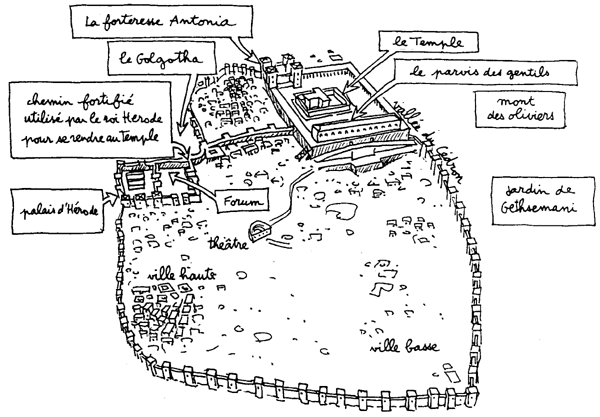 La forteresse Antonia
le Golgotha
le Temple
le parvis des gentils
chemin fortifié
utilisé par le roi Hérode
pour se rendre au Temple
mont
des oliviers
vallée du Cédron
palais d'Hérode
Forum
jardin de
Gethsemani
théâtre
ville haute
ville basse